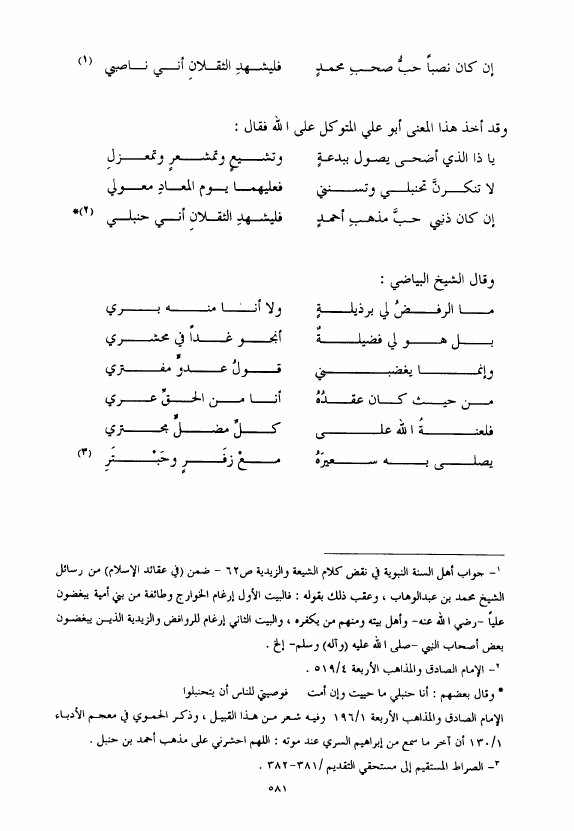 إن كان نصباً حبُّ صحبِ محمدٍ فليشهدِ الثقلانِ أنـي ناصبي (١)
وقد أخذ هذا المعنى أبو علي المتوكل على الله فقال :
يا ذا الذي أضحى يصول ببدعةٍ وتشيعٍ وتمشعرٍ وتمعزلِ
لا تنكرنَّ تحنبلي وتسنني فعليهما يوم المعادِ معولي
إن كان ذنبي حبَّ مذهبِ أحمدٍ فليشهدِ الثقلانِ أنـي حنبلي (٢)*
وقال الشيخ البياضي :
ما الرفضُ لي برذيلةٍ ولا أنا منه بري
بل هو لي فضيلةٌ أنجو غداً في محشري
وإنما يغضبني قولُ عدوٍّ مفتري
من حيث كان عقدُهُ أنا من الحقِّ عري
فلعنةُ الله على كلِّ مضلٍّ مجتري
يصلى به سعيرَهُ معْ زفرٍ وحَبْتَرِ (٣)
١- جواب أهل السنة النبوية في نقض كلام الشيعة والزيدية ص٦٢ - ضمن (في عقائد الإسلام) من رسائل
الشيخ محمد بن عبدالوهاب ، وعقب ذلك بقوله : فالبيت الأول إرغام الخوارج وطائفة من بني أمية يبغضون
علياً -رضي الله عنه- وأهل بيته ومنهم من يكفره ، والبيت الثاني إرغام للروافض والزيدية الذين يبغضون
بعض أصحاب النبي -صلى الله عليه (وآله) وسلم- إلخ .
٢- الإمام الصادق والمذاهب الأربعة ٥١٩/٤ .
* وقال بعضهم : أنا حنبلي ما حييت وإن أمت فوصيتي للناس أن يتحنبلوا
الإمام الصادق والمذاهب الأربعة ١٩٦/١ وفيه شعر من هذا القبيل ، وذكر الحموي في معجم الأدباء
١٣٠/١ أن آخر ما سمع من إبراهيم السري عند موته : اللهم احشرني على مذهب أحمد بن حنبل .
٣- الصراط المستقيم إلى مستحقي التقديم /٣٨١-٣٨٢ .
٥٨١